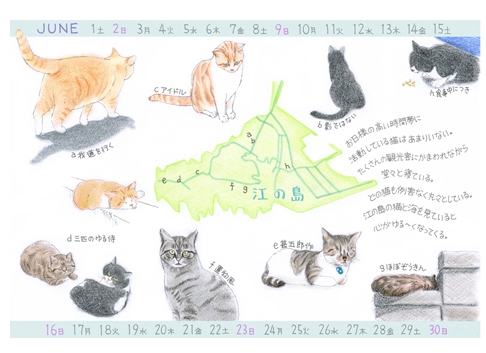 JUNE 1土 2日 3月 4火 5水 6木 7金 8土 9日 10月 11火 12水 13木 14金 15土
c アイドル
h 食事中につき
b 影ではない
a 我道を行く
お日様の高い時間帯に
活動している猫はあまりいない。
たくさんの観光客にかまわれながら
堂々と寝ている。
どの猫も例外なく丸々としている。
江の島の猫と海を見ていると
心がゆる〜くなってくる。
a
b
c
d
e
f
g
h
江の島
d 三匹のゆる侍
e 甚五郎作
f 置物風
g ほぼぞうきん
16日 17月 18火 19水 20木 21金 22土 23日 24月 25火 26水 27木 28金 29土 30日